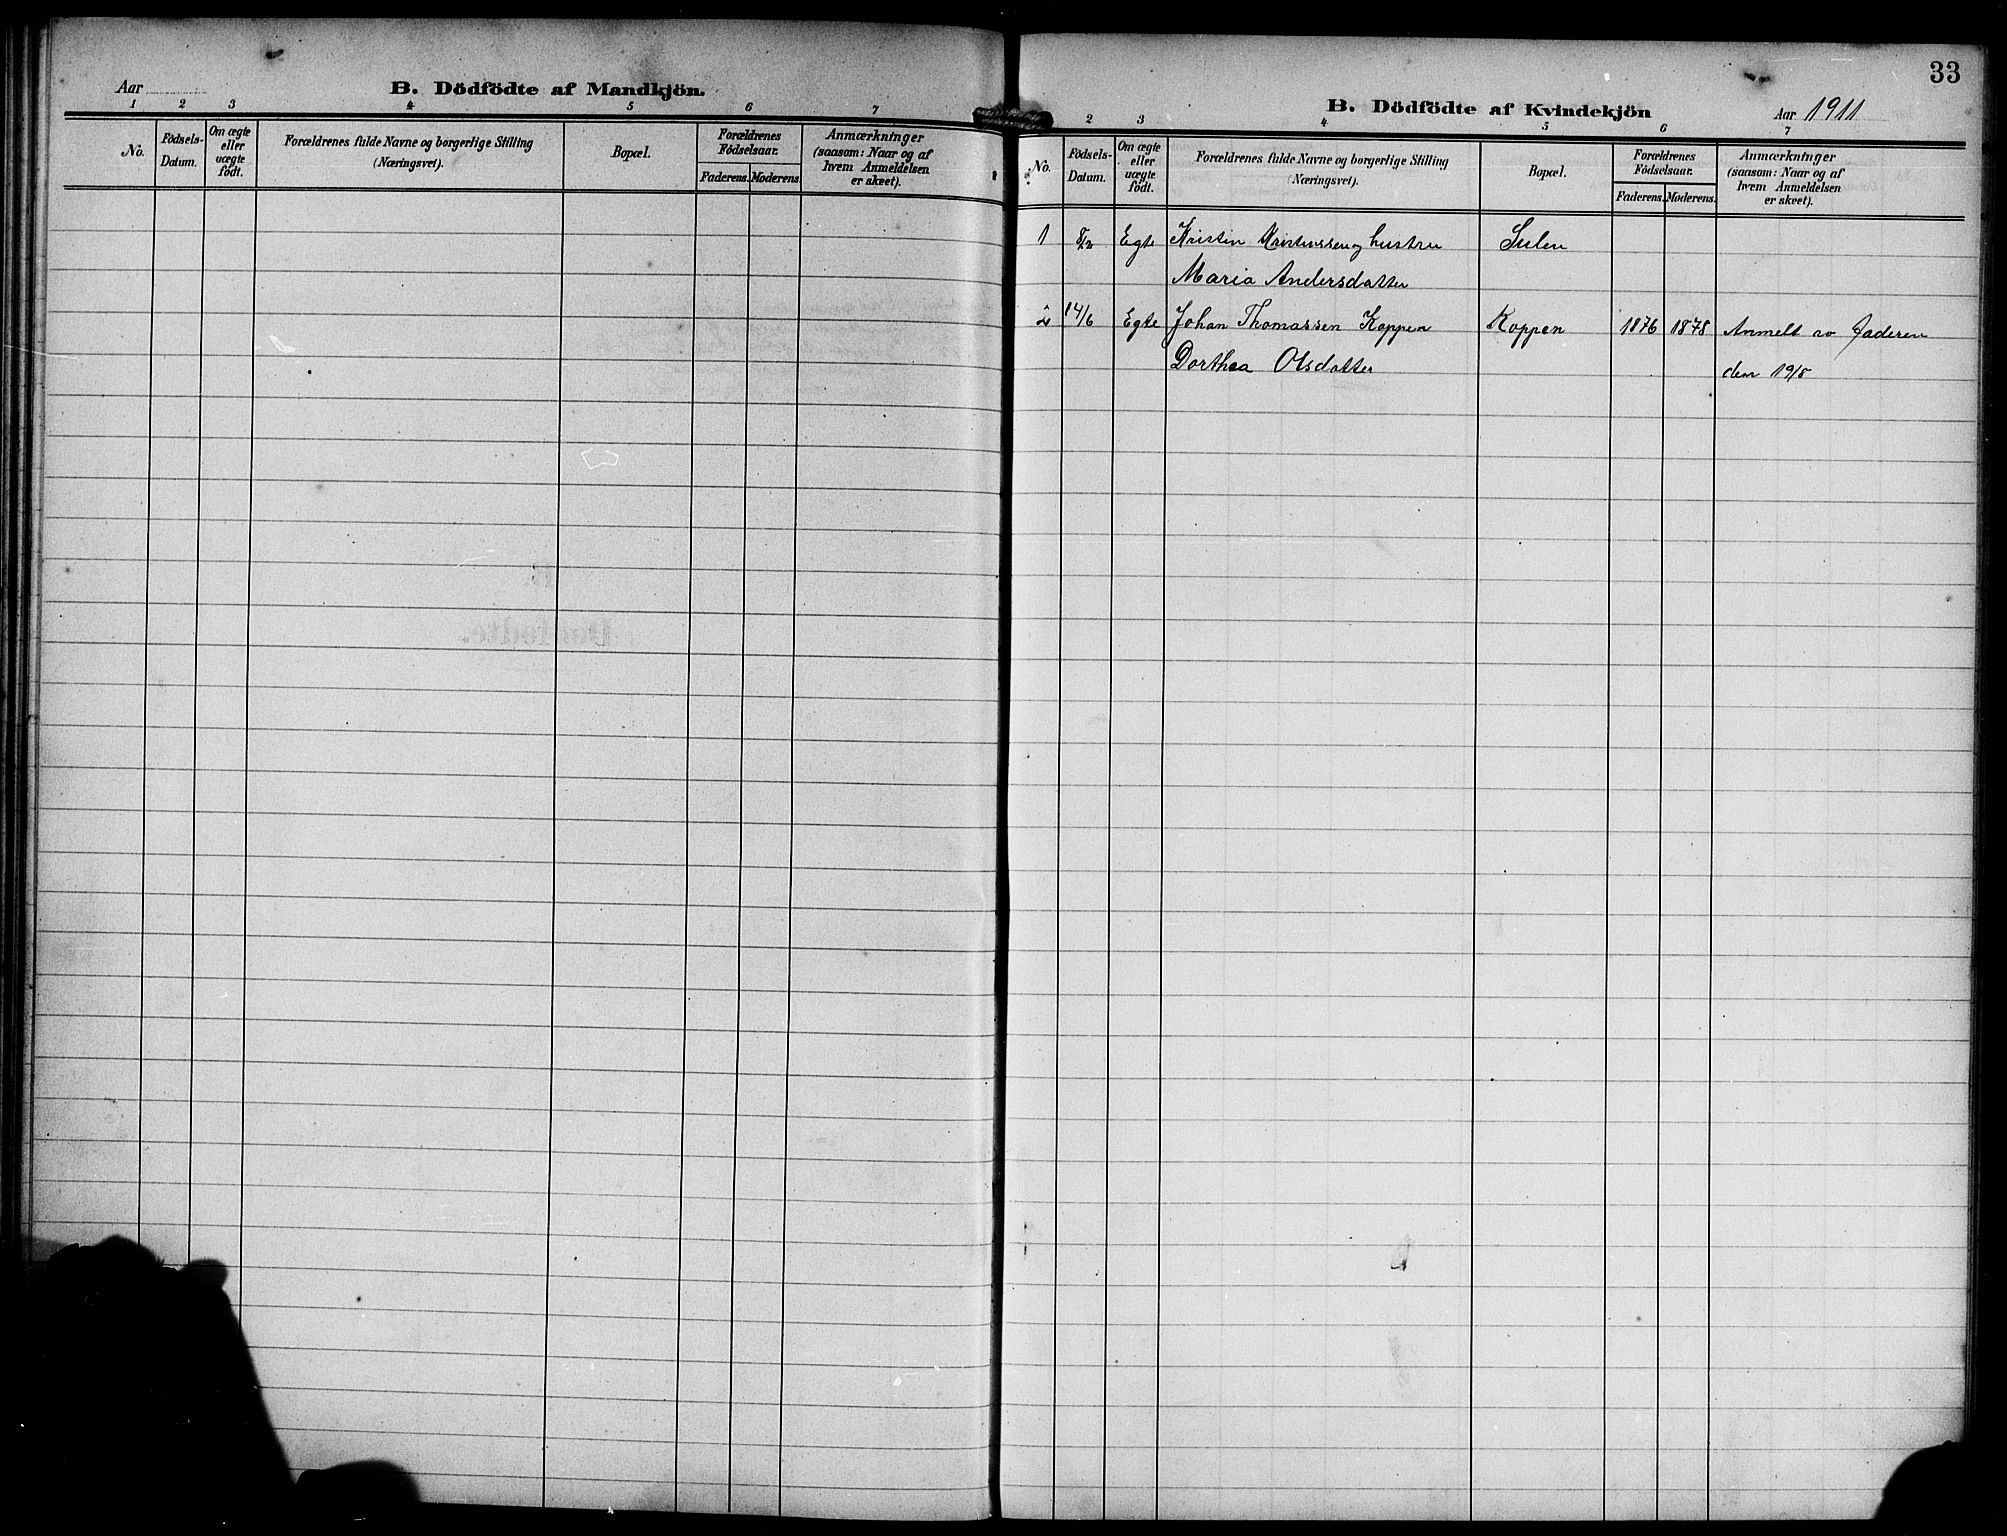 Aar
B. Dödfödte af Mandkjön.
1 2 3 4 5 6 7
No.
Födsels-
Datum.
Om ægte
eller
uægte
födt.
Forældrenes fulde Navne og borgerlige Stilling
(Næringsvei).
Bopæl.
Forældrenes
Födselsaar.
Faderens. Moderens.
Anmærkninger
(saasom: Naar og af
hvem Anmeldelsen
er skeet).
33
B. Dödfödte af Kvindekjön
Aar 1911
2 3 4 5 6 7
No.
Födsels-
Datum.
Om ægte
eller
uægte
födt.
Forældrenes fulde Navne og borgerlige Stilling
(Næringsvei).
Bopæl.
Forældrenes
Födselsaar.
Faderens. Moderens.
Anmærkninger
(saasom: Naar og af
hvem Anmeldelsen
er skeet).
1 Egte Kristin Kristenssen og hustru Sulen
Maria Andersdatter
2 14/6 Egte Johan Thomassen Koppen Koppen 1876 1878 Anmelt av Faderen
Dorthea Olsdatter den